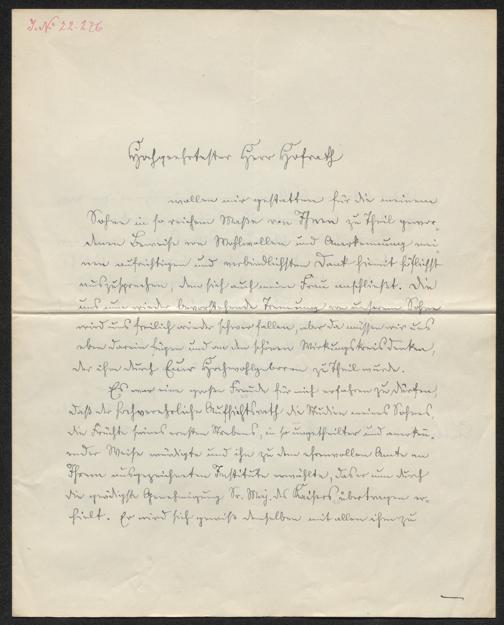 J. N. 22.276
Hochgeehrtester Herr Hofrath
wollen mir gestatten für die meinem
Sohne in so reichem Maße von Ihnen zu Theil gewor-
denen Beweise von Wohlwollen und Anerkennung mei-
nen aufrichtigen und verbindlichsten Dank hiemit höflichst
auszusprechen, dem sich auch meine Frau anschließt. Die
uns nun wieder bevorstehende Trennung von unserem Sohne
wird uns freilich wieder schwer fallen, aber da müssen wir uns
eben darein fügen und an den schönen Wirkungskreis denken,
der ihm durch Euer Hochwohlgeboren zu Theil wurde.
Es war eine große Freude für mich erfahren zu dürfen,
daß der hochverehrliche Aufsichtsrath die Studien meines Sohnes
die Früchte seines ernsten Strebens, in so ungetheilter und anerken-
nender Weise würdigte und ihn zu dem ehrenvollen Amte an
Ihrem ausgezeichneten Institute erwählte, das er nun durch
die gnädigste Genehmigung Sr. Maj. des Kaisers übertragen er-
hielt. Er wird sich gewiß demselben mit allen ihm zu